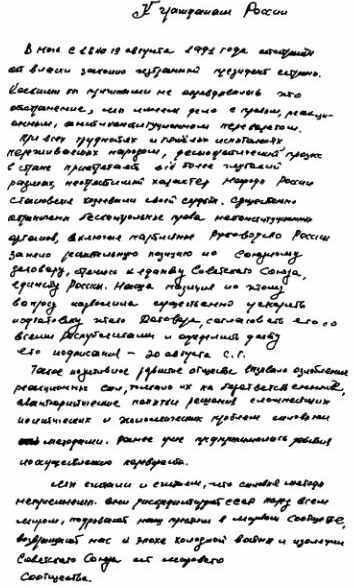 К гражданам России
В ночь с 18 на 19 августа 1991 года отстранён
от власти законно избранный президент страны.
Какими бы причинами не оправдывалось это
отстранение, мы имеем дело с правым, реакци-
онным, антиконституционным переворотом.
При всех трудностях и тяжёлых испытаниях
переживаемых народом, демократический процесс
в стране приобретает всё более глубокий
размах, необратимый характер народы России
становятся хозяевами своей судьбы. Существенно
ограничены бесконтрольные права неконституционных
органов, включая партийные Руководство России
заняло решительную позицию по Союзному
договору, стремясь к единству Советского Союза,
единству России. Наша позиция по этому
вопросу позволила существенно ускорить
подготовку этого Договора, согласовать его со
всеми республиками и определить дату
его подписания – 20 августа с.г.
Такое развитие событий вызвало озлобление
реакционных сил, толкало их на безответственные,
авантюристические попытки решения сложнейших
политических и экономических проблем силовыми
методами. Ранее уже предпринимались попытки
по осуществлению переворота.
Мы считали и считаем, что силовые методы
неприемлемы. Они дискредитируют СССР перед всем
миром, подрывают наш престиж в мировом сообществе,
возвращают нас к эпохе холодной войны и изоляции
Советского Союза от мирового
Сообщества.